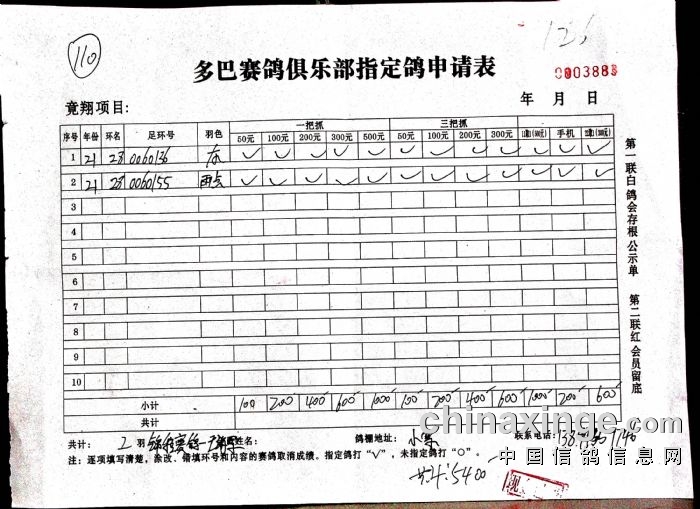 110
126
多巴赛鸽俱乐部指定鸽申请表
000388
竟翔项目:
年 月 日
序号 年份 环名 足环号 羽色 一把抓 三把抓
50元 100元 200元 300元 500元 50元 100元 200元 300元 手机
1 21 28 0060136 灰 ✓ ✓ ✓ ✓ ✓ ✓ ✓ ✓ ✓ ✓ ✓ ✓
2 21 28 0060155 雨点 ✓ ✓ ✓ ✓ ✓ ✓ ✓ ✓ ✓ ✓ ✓ ✓
3
4
5
6
7
8
9
10
小计 100 200 400 600 1000 100 200 400 600 1000 200 600
共计
共计: 2 羽 姓名: 鸽棚地址: 联系电话:
注: 逐项填写清楚, 涂改、错填环号和内容的赛鸽取消成绩。指定鸽打“√”, 未指定鸽打“O”。
共计:5400
第一联白鸽会存根公示单 第二联红会员留底
chinaxinge.com
中国信鸽信息网